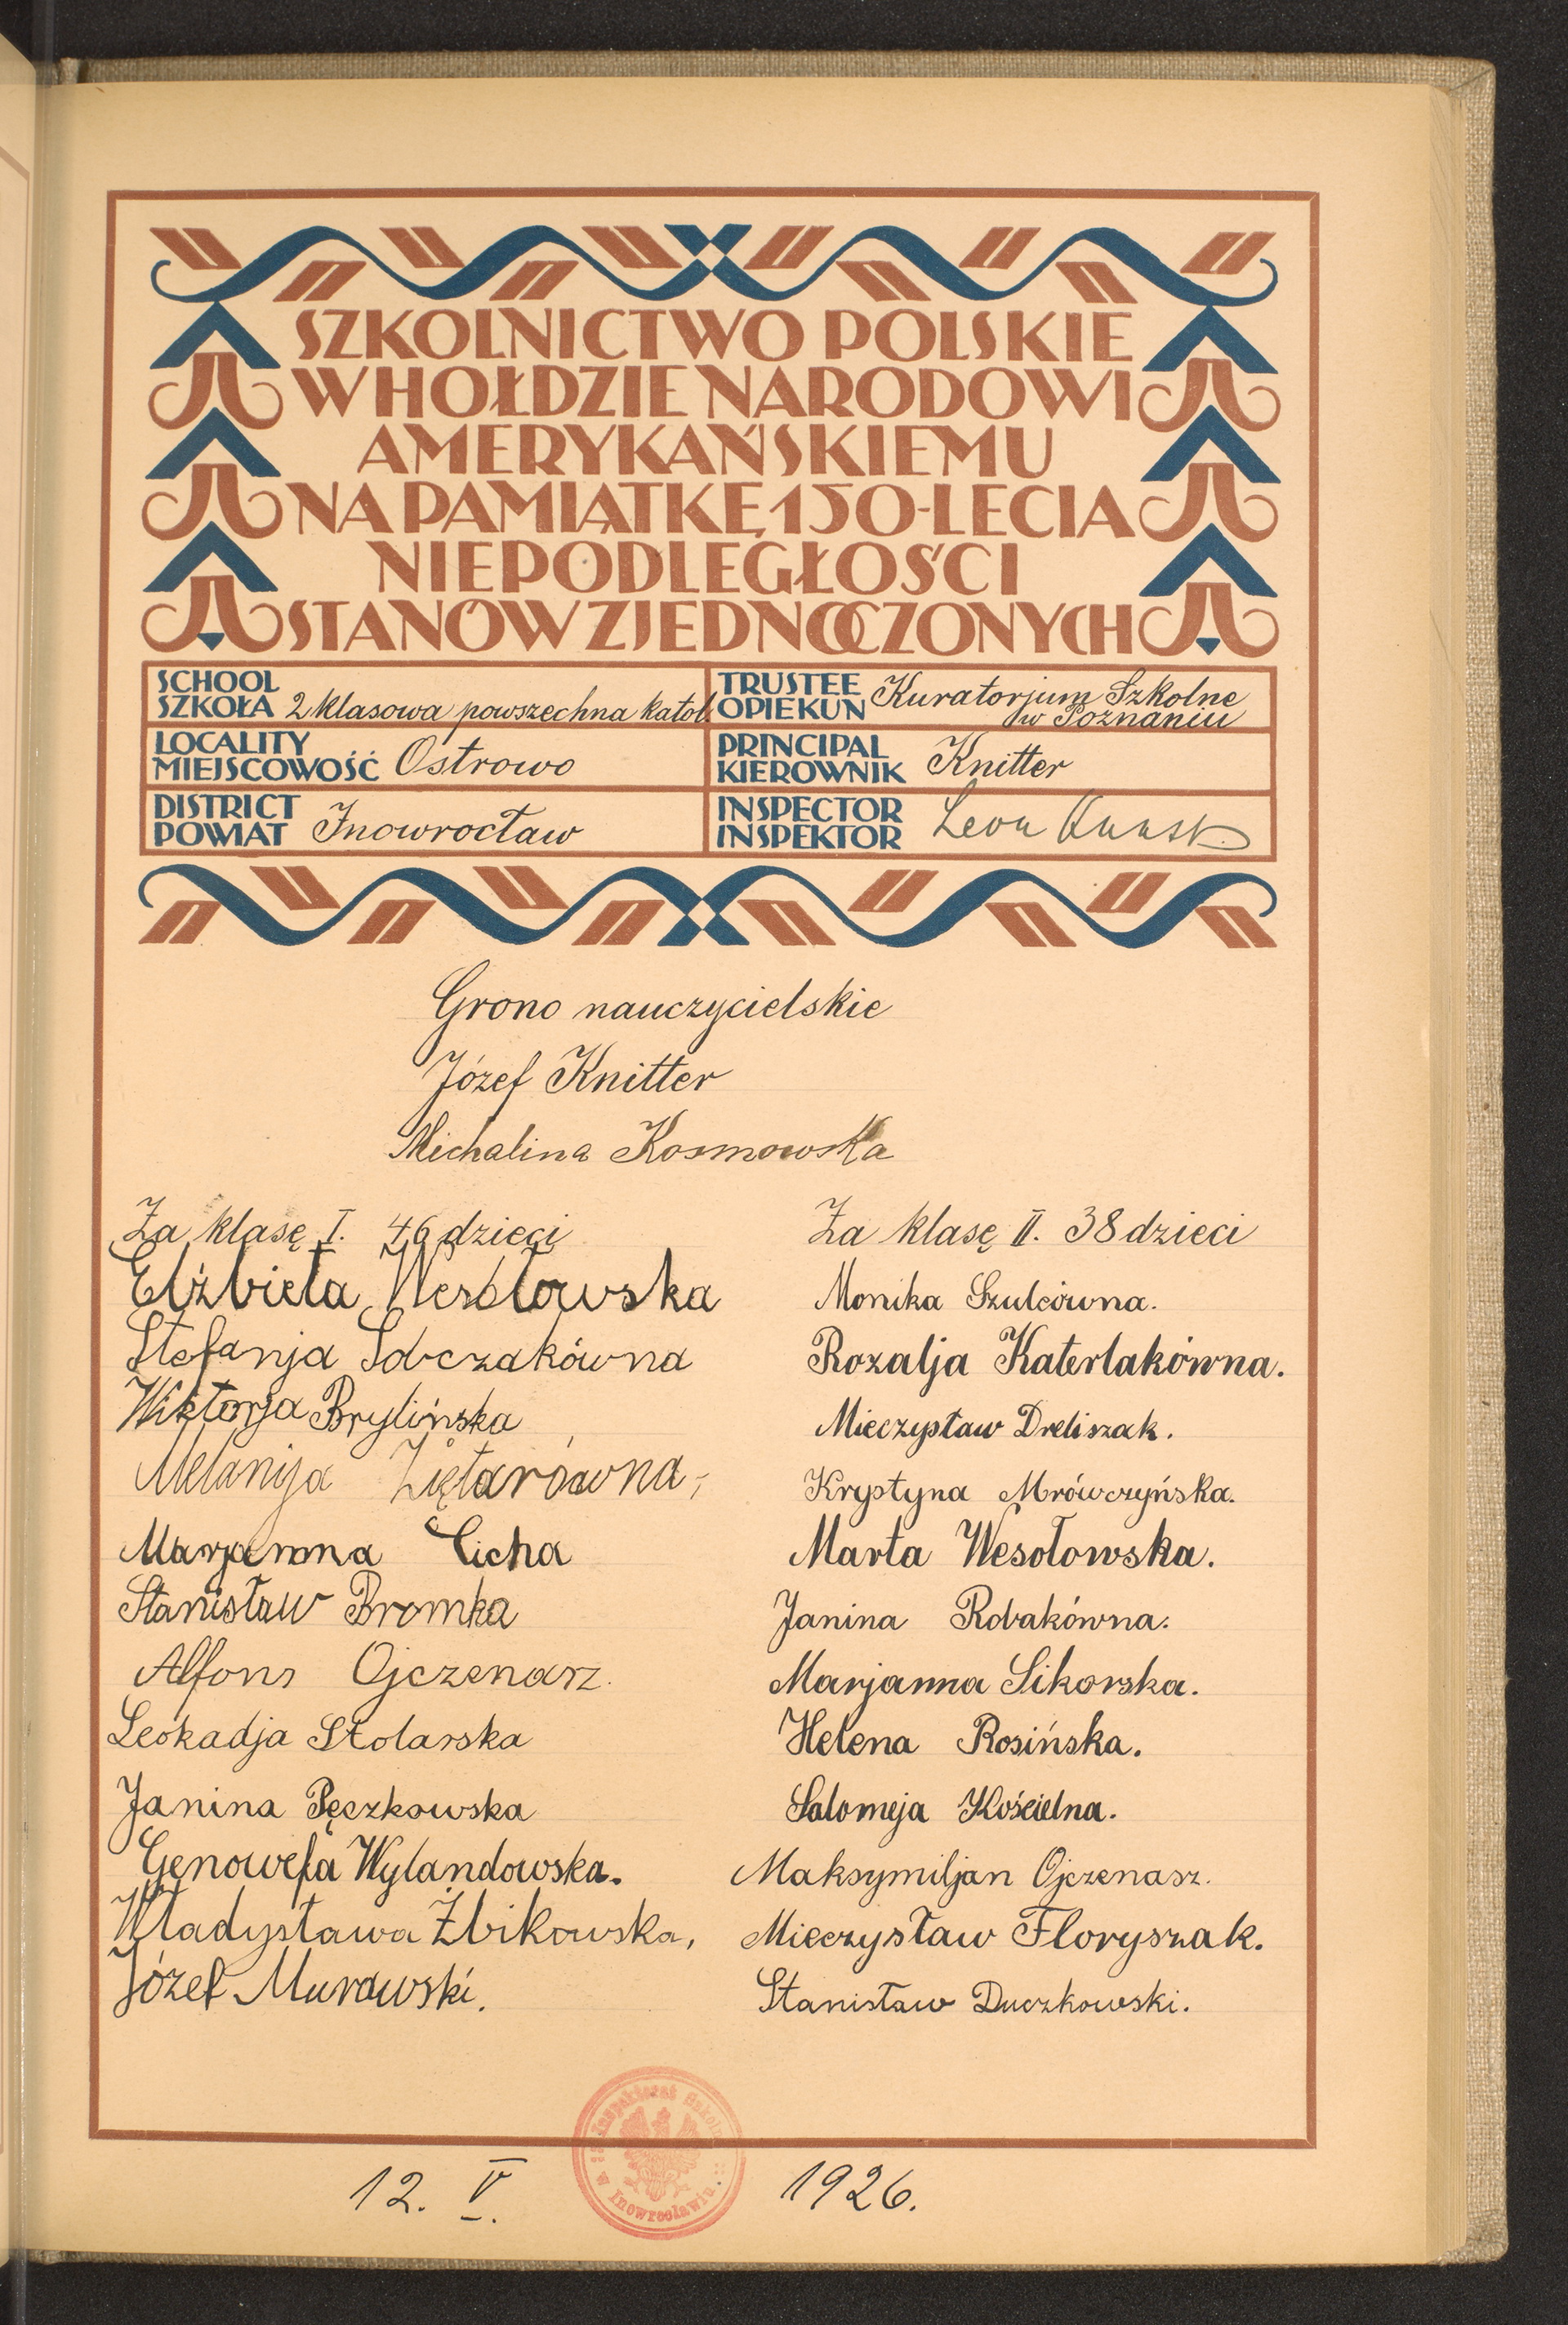 SZKOLNICTWO POLSKIE
W HOŁDZIE NARODOWI
AMERYKAŃSKIEMU
NA PAMIĄTKĘ 150-LECIA
NIEPODLEGŁOŚCI
STANÓW ZJEDNOCZONYCH
SCHOOL
SZKOŁA 2 klasowa powszechna katol.
TRUSTEE
OPIEKUN Kuratorjum Szkolne
w Poznaniu
LOCALITY
MIEJSCOWOŚĆ Ostrowo
PRINCIPAL
KIEROWNIK Knitter
DISTRICT
POWIAT Inowrocław
INSPECTOR
INSPEKTOR Leon
Grono nauczycielskie
Józef Knitter
Michalina Kosmowska
Za klasę I. 46 dzieci
Elżbieta Wesołowska
Stefanja Sobczakówna
Wiktorja Brylińska
Melanija Ziętarówna,
Marjanna Cicha
Stanisław Bromka
Alfons Ojczenarz.
Leokadja Stolarska
Janina Pęczkowska
Genowefa Wylandowska.
Władysława Żbikowska,
Józef Murawski.
Za klasę II. 38 dzieci
Monika Szulcówna.
Rozalja Katerlakówna.
Mieczysław Dreliszak.
Krystyna Mrówczyńska.
Marta Wesołowska.
Janina Robakówna.
Marjanna Sikorska.
Helena Rosińska.
Salomeja Kościelna.
Maksymiljan Ojczenasz.
Mieczysław Floryszak.
Stanisław Duczkowski.
Inspektorat Szkolny
w Inowrocławiu.
12. V. 1926.